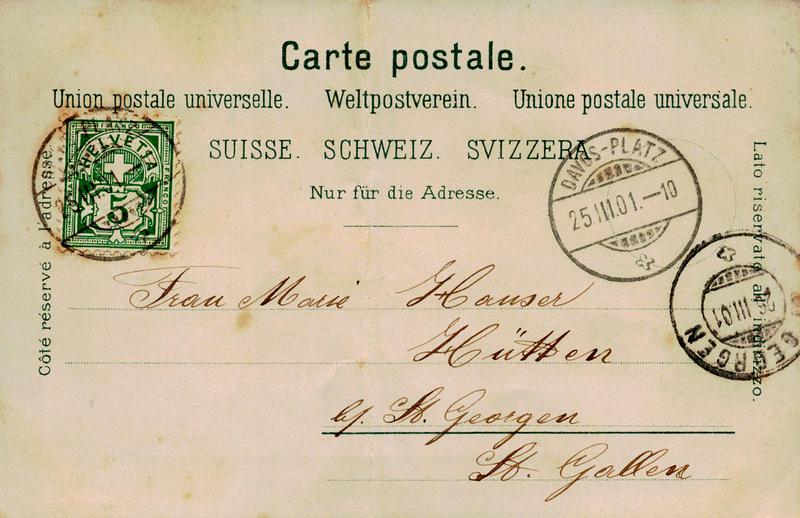 Carte postale.
Union postale universelle. Weltpostverein. Unione postale universale.
SUISSE. SCHWEIZ. SVIZZERA
Nur für die Adresse.
Côté réservé à l'adresse.
Lato riservato all'indirizzo.
HELVETIA
FRANCO
5
DAVOS-PLATZ
25.III.01.-10
GEORGEN
26.III.01
Frau Marie Hauser
Hütten
b/. St. Georgen
St. Gallen